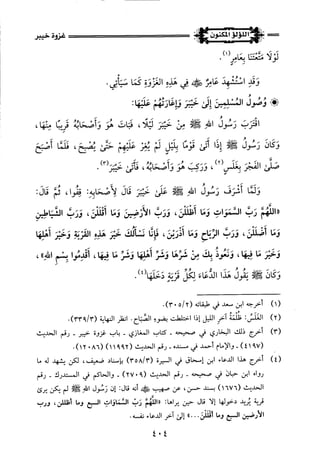 اللؤلؤ المكنون
غزوة خيبر
لَوْلَا مَتَّعْتَنَا بِعَامِرٍ(١).
وَقَدِ اسْتُشْهِدَ عَامِرٌ ﷺ فِي هَذِهِ الْغَزْوَةِ كَمَا سَيَأْتِي.
* وُصُولُ الْمُسْلِمِينَ إِلَى خَيْبَرَ وَإِغَارَتُهُمْ عَلَيْهَا:
اقْتَرَبَ رَسُولُ اللهِ ﷺ مِنْ خَيْبَرَ لَيْلًا، فَبَاتَ هُوَ وَأَصْحَابُهُ قَرِيبًا مِنْهَا،
وَكَانَ رَسُولُ اللهِ ﷺ إِذَا أَتَى قَوْمًا بِلَيْلٍ لَمْ يُغِرْ عَلَيْهِمْ حَتَّى يُصْبِحَ، فَلَمَّا أَصْبَحَ
صَلَّى الْفَجْرَ بِغَلَسٍ(٢)، وَرَكِبَ هُوَ وَأَصْحَابُهُ، فَأَتَى خَيْبَرَ(٣).
وَلَمَّا أَشْرَفَ رَسُولُ اللهِ ﷺ عَلَى خَيْبَرَ قَالَ لِأَصْحَابِهِ: قِفُوا، ثُمَّ قَالَ:
«اللَّهُمَّ رَبَّ السَّمَوَاتِ وَمَا أَظْلَلْنَ، وَرَبَّ الْأَرَضِينَ وَمَا أَقْلَلْنَ، وَرَبَّ الشَّيَاطِينِ
وَمَا أَضْلَلْنَ، وَرَبَّ الرِّيَاحِ وَمَا أَذْرَيْنَ، فَإِنَّا نَسْأَلُكَ خَيْرَ هَذِهِ الْقَرْيَةِ وَخَيْرَ أَهْلِهَا
وَخَيْرَ مَا فِيهَا، وَنَعُوذُ بِكَ مِنْ شَرِّهَا وَشَرِّ أَهْلِهَا وَشَرِّ مَا فِيهَا، أَقْدِمُوا بِسْمِ اللهِ»،
وَكَانَ ﷺ يَقُولُ هَذَا الدُّعَاءَ لِكُلِّ قَرْيَةٍ دَخَلَهَا(٤).
(١) أخرجه ابن سعد في طبقاته (٣٠٥/٢).
(٢) الغَلَسُ: ظُلْمَةُ آخر الليل إذا اختلطت بضوء الصَّباح. انظر النهاية (٣٣٩/٣).
(٣) أخرج ذلك البخاري في صحيحه ـ كتاب المغازي ـ باب غزوة خيبر ـ رقم الحديث
(٤١٩٧) ـ والإمام أحمد في مسنده ـ رقم الحديث (١١٩٩٢) (١٢٠٨٦).
(٤) أخرج هذا الدعاء ابن إسحاق في السيرة (٣٥٨/٣) بإسناد ضعيف، لكن يشهد له ما
رواه ابن حبان في صحيحه ـ رقم الحديث (٢٧٠٩) ـ والحاكم في المستدرك ـ رقم
الحديث (١٦٧٦) بسند حسن، عن صهيب ﷺ أنه قال: إن رسول الله ﷺ لم يكن يرى
قرية يُريد دخولها إلا قال حين يراها: «اللَّهُمَّ رَبَّ السَّمَاوَاتِ السبع وما أظللن، ورب
الأرضين السبع وما أَقْلَلْنَ...» إلى آخر الدعاء نفسه.
٤٠٤